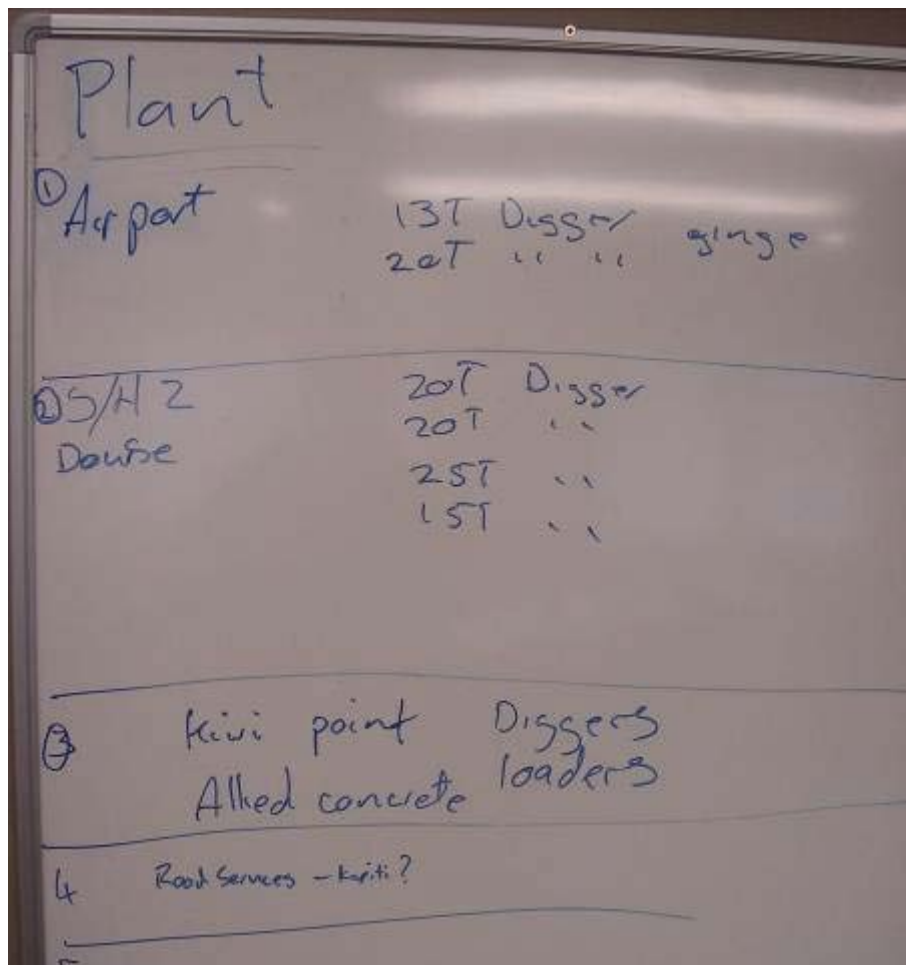 Plant
① Airport 13T Digger ginge
20T " "
② S/H 2 20T Digger
Dowse 20T "
25T "
15T "
③ Kiwi point Diggers
Allied concrete loaders
4 Road Services - Kapiti?